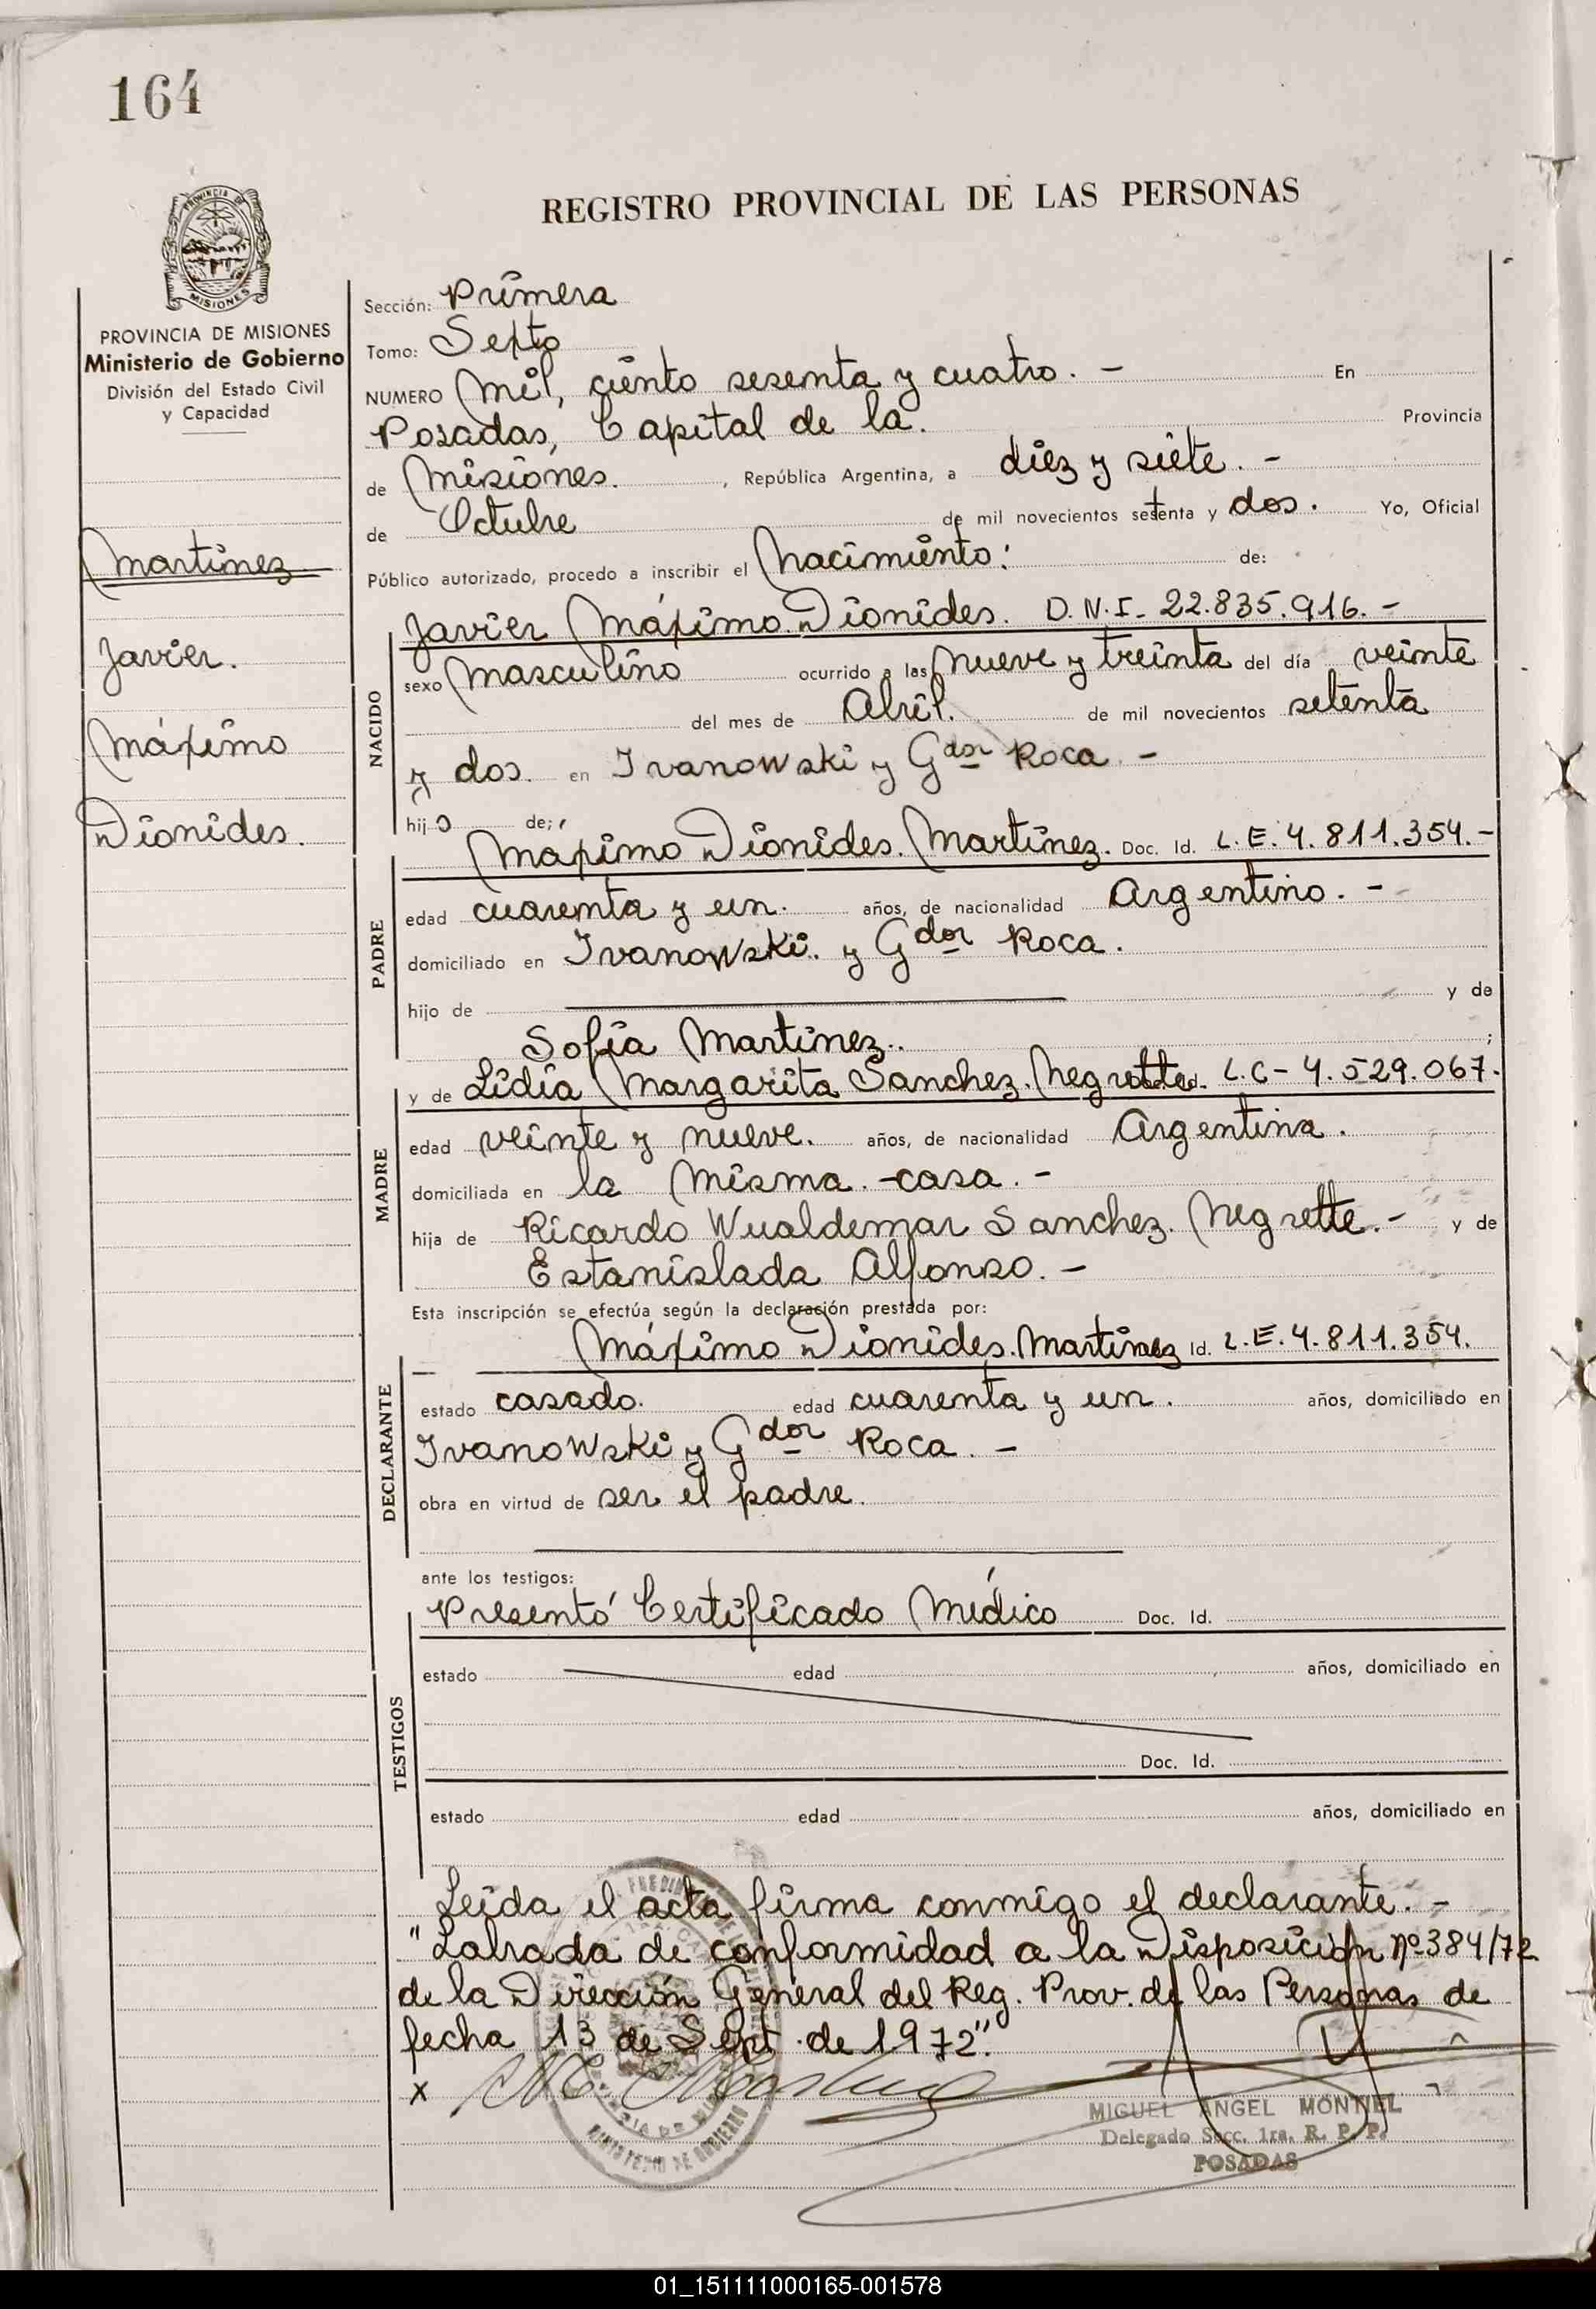 164
PROVINCIA DE
MISIONES
REGISTRO PROVINCIAL DE LAS PERSONAS
PROVINCIA DE MISIONES
Ministerio de Gobierno
División del Estado Civil
y Capacidad
Martinez
Javier.
Máximo
Dionides.
Sección: Primera
Tomo: Sexto
NUMERO Mil, ciento sesenta y cuatro. - En
Posadas, Capital de la. Provincia
de Misiones. , República Argentina, a diez y siete. -
de Octubre de mil novecientos setenta y dos. Yo, Oficial
Público autorizado, procedo a inscribir el Nacimiento: de:
Javier Máximo Dionides. D.N.I- 22.835.916. -
NACIDO
sexo Masculino ocurrido a las Nueve y treinta del día veinte
del mes de Abril. de mil novecientos setenta
y dos. en Ivanowski y Gdor Roca. -
hijo de;
Máximo Dionides. Martinez. Doc. Id. L.E. 4.811.354.-
PADRE
edad cuarenta y un. años, de nacionalidad Argentino. -
domiciliado en Ivanowski. y Gdor Roca.
hijo de y de
Sofía Martinez.. ;
y de Lidia Margarita Sanchez. Negrette. L.C- 4.529.067.
MADRE
edad veinte y nueve. años, de nacionalidad Argentina.
domiciliada en la Misma.-casa. -
hija de Ricardo Wualdemar Sanchez. Negrette.- y de
Estanislada Alfonso. -
Esta inscripción se efectúa según la declaración prestada por:
Máximo Dionides. Martinez Id. L.E. 4.811.354.
DECLARANTE
estado casado. edad cuarenta y un. años, domiciliado en
Ivanowski y Gdor Roca. -
obra en virtud de ser el padre.
ante los testigos:
Presentó Certificado Médico Doc. Id.
TESTIGOS
estado edad años, domiciliado en
Doc. Id.
estado edad años, domiciliado en
Leída el acta firma conmigo el declarante. -
"Labrada de conformidad a la Disposición Nº384/72
de la Dirección General del Reg. Prov. de las Personas de
fecha 13 de Sept. de 1972".
x
MINISTERIO DE GOBIERNO
MIGUEL ANGEL MONTIEL
Delegado Secc. 1ra. R. P. P.
POSADAS
01_151111000165-001578